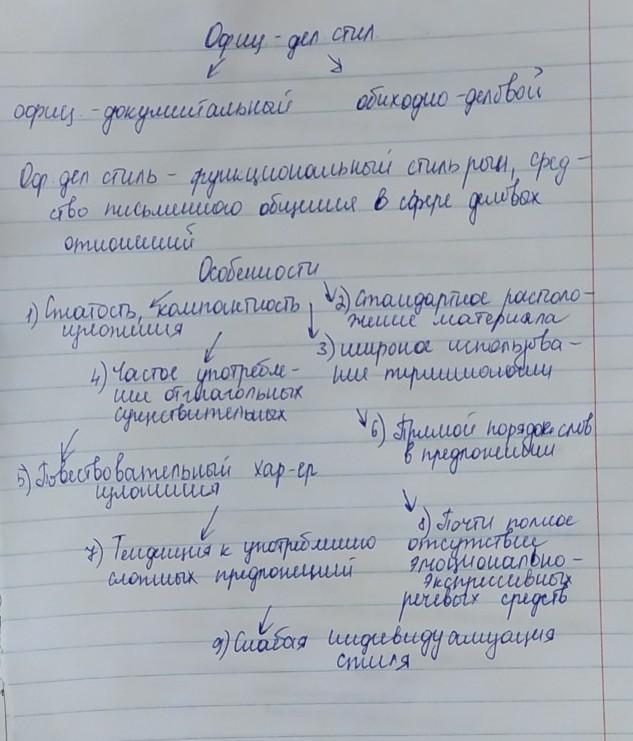 Офиц - дел стил
офиц. - документальный обиходно - деловой
Оф. дел стиль - функциональный стиль речи, сред-
ство письменного общения в сфере деловых
отношений
Особенности
1) Сжатость, компактность
изложения
2) Стандартное располо-
жение материала
3) широкое использова-
ние терминологии
4) Частое употребле-
ние отглагольных
существительных
5) Повествовательный хар-ер
изложения
6) Прямой порядок слов
в предложении
7) Тенденция к употреблению
сложных предложений
8) Почти полное
отсутствие
эмоционально-
экспрессивных
речевых средств
9) Слабая индивидуализация
стиля